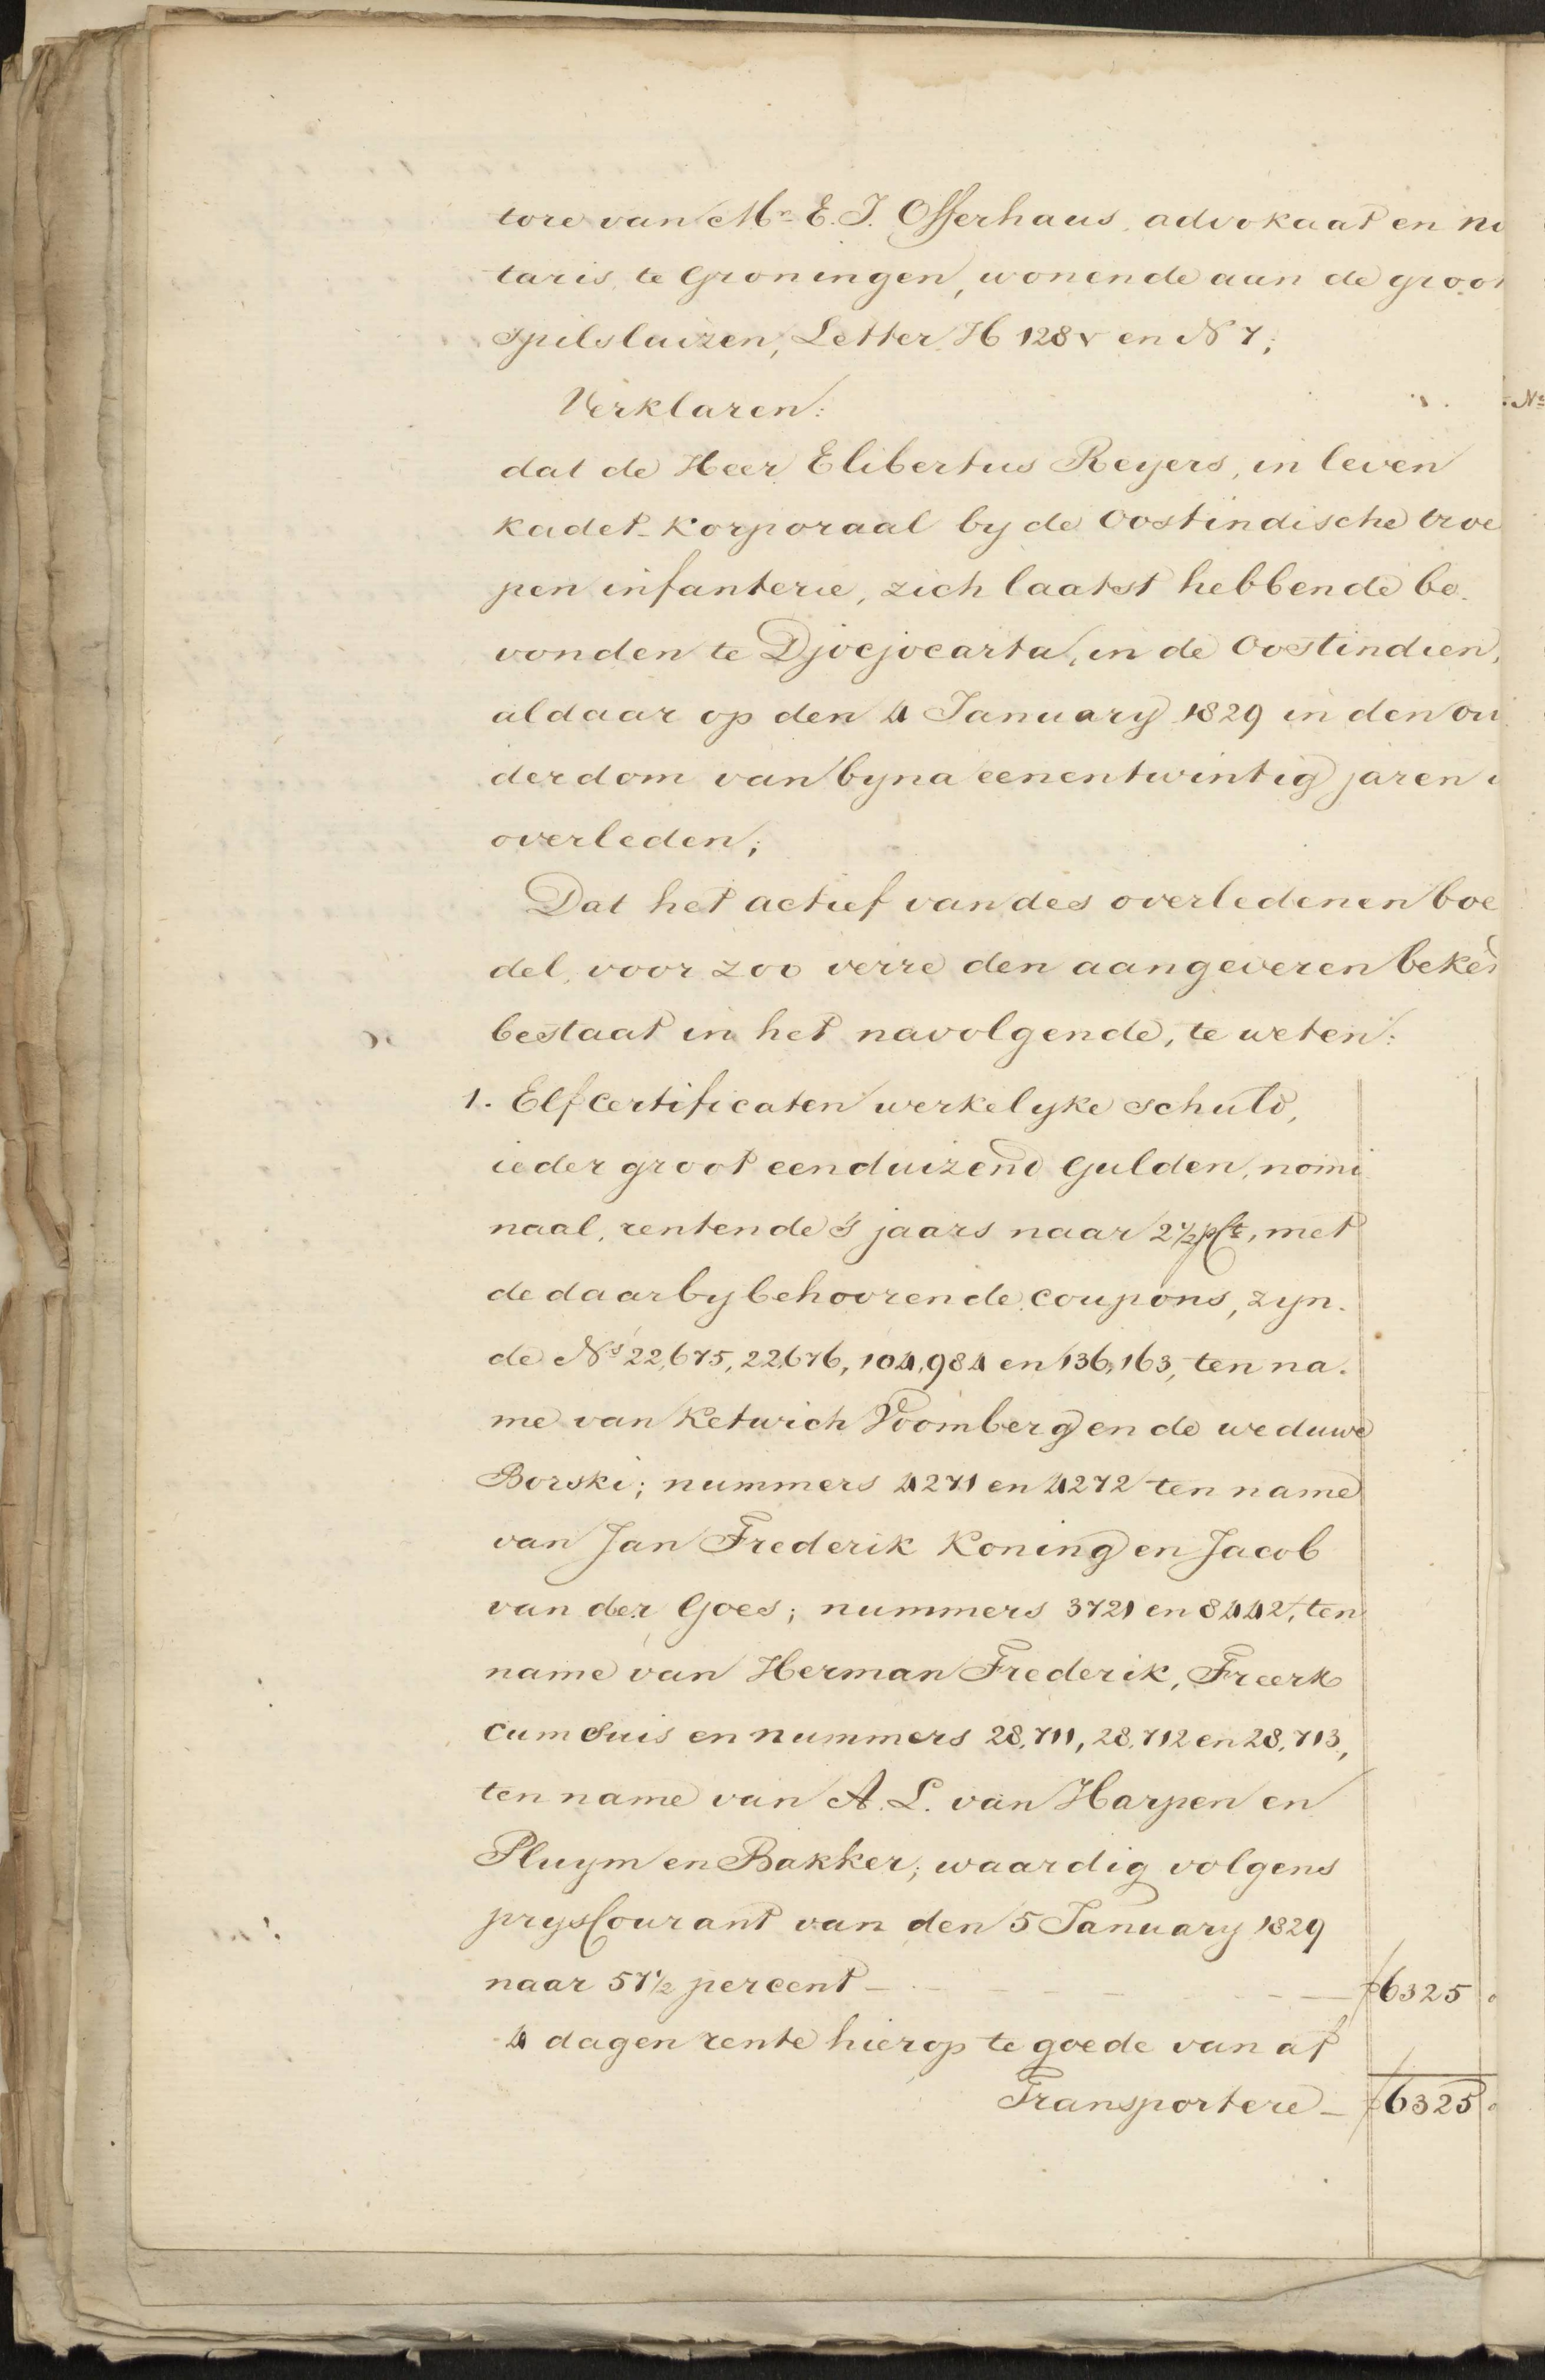 tore van Mr. E. J. Offerhaus, advokaat en no
taris te Groningen, wonende aan de groot
spilsluizen, Letter H 128 v en N 7;
Verklaren:
dat de Heer Elibertus Reyers, in leven
kadet-korporaal by de Oostindische troe
pen infanterie, zich laatst hebbende be-
vonden te Djocjocarta, in de Oostindien,
aldaar op den 4 January 1829 in den ou
derdom van byna eenentwintig jaren i
overleden;
Dat het actief van des overledenen boe
del, voor zoo verre den aangeveren beken
bestaat in het navolgende, te weten:
1. Elf certificaten werkelyke schuld,
ieder groot eenduizend Gulden, nomi
naal, rentende 's jaars naar 2½ pCt., met
de daarby behoorende coupons, zyn-
de Ns 22,675, 22676, 104,984 en 136,163, ten na-
me van Ketwich Voomberg en de weduwe
Borski; nummers 4271 en 4272 ten name
van Jan Frederik Koning en Jacob
van der Goes; nummers 3721 en 8442, ten
name van Herman Frederik, Freerk
cum suis en nummers 28,711, 28,712 en 28,713,
ten name van A. L. van Harpen en
Pluym en Bakker; waardig volgens
prysCourant van den 5 January 1829
naar 57½ percent - - - - - ƒ 6325
4 dagen rente hierop te goede van af
Transportere - ƒ 6325